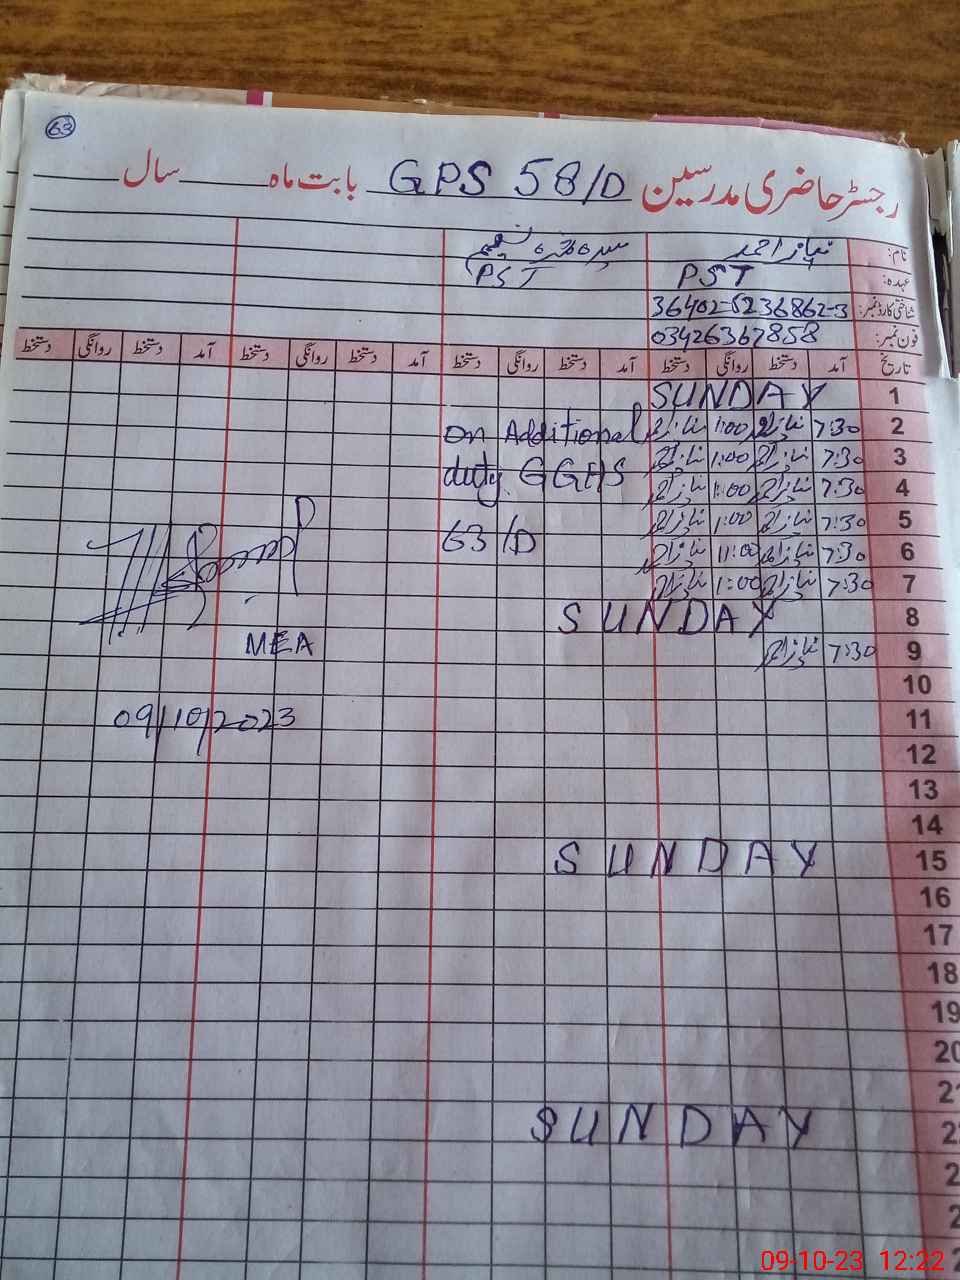 63
رجسٹر حاضری مدرسین GPS 58/D بابت ماہ سال
نام: نیاز احمد
عہدہ: PST PST
شناختی کارڈ نمبر: 36402-5236862-3
فون نمبر: 03426367858
تاریخ آمد دستخط روانگی دستخط آمد دستخط روانگی دستخط آمد دستخط روانگی دستخط آمد دستخط روانگی دستخط
1 SUNDAY
2 7:30 1:00 on Additional
3 7:30 1:00
4 7:30 1:00 duty GGHS
5 7:30 1:00
6 7:30 11:00 63/D
7 7:30 1:00
8 SUNDAY
9 7:30 MEA
10
11 09/10/2023
12
13
14
15 SUNDAY
16
17
18
19
20
21
22 SUNDAY
09-10-23 12:22